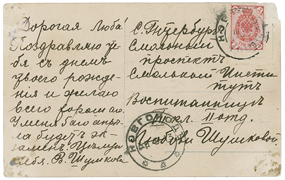 Дорогая Люба
Поздравляю те-
бя с днемъ
твоего рожде-
нія и желаю
всего хорошаго.
У меня 6аго апрѣ-
ля будетъ эк-
заменъ.
В. Шумкова
С. Петербургъ
Смольный
проспектъ
Смольный Инсти-
тутъ
Воспитанницѣ
II отд.
Любови Шумковой
НОВГОРОДЪ